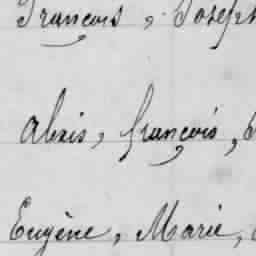 François, Joseph
Alexis, françois,
Eugène, Marie,